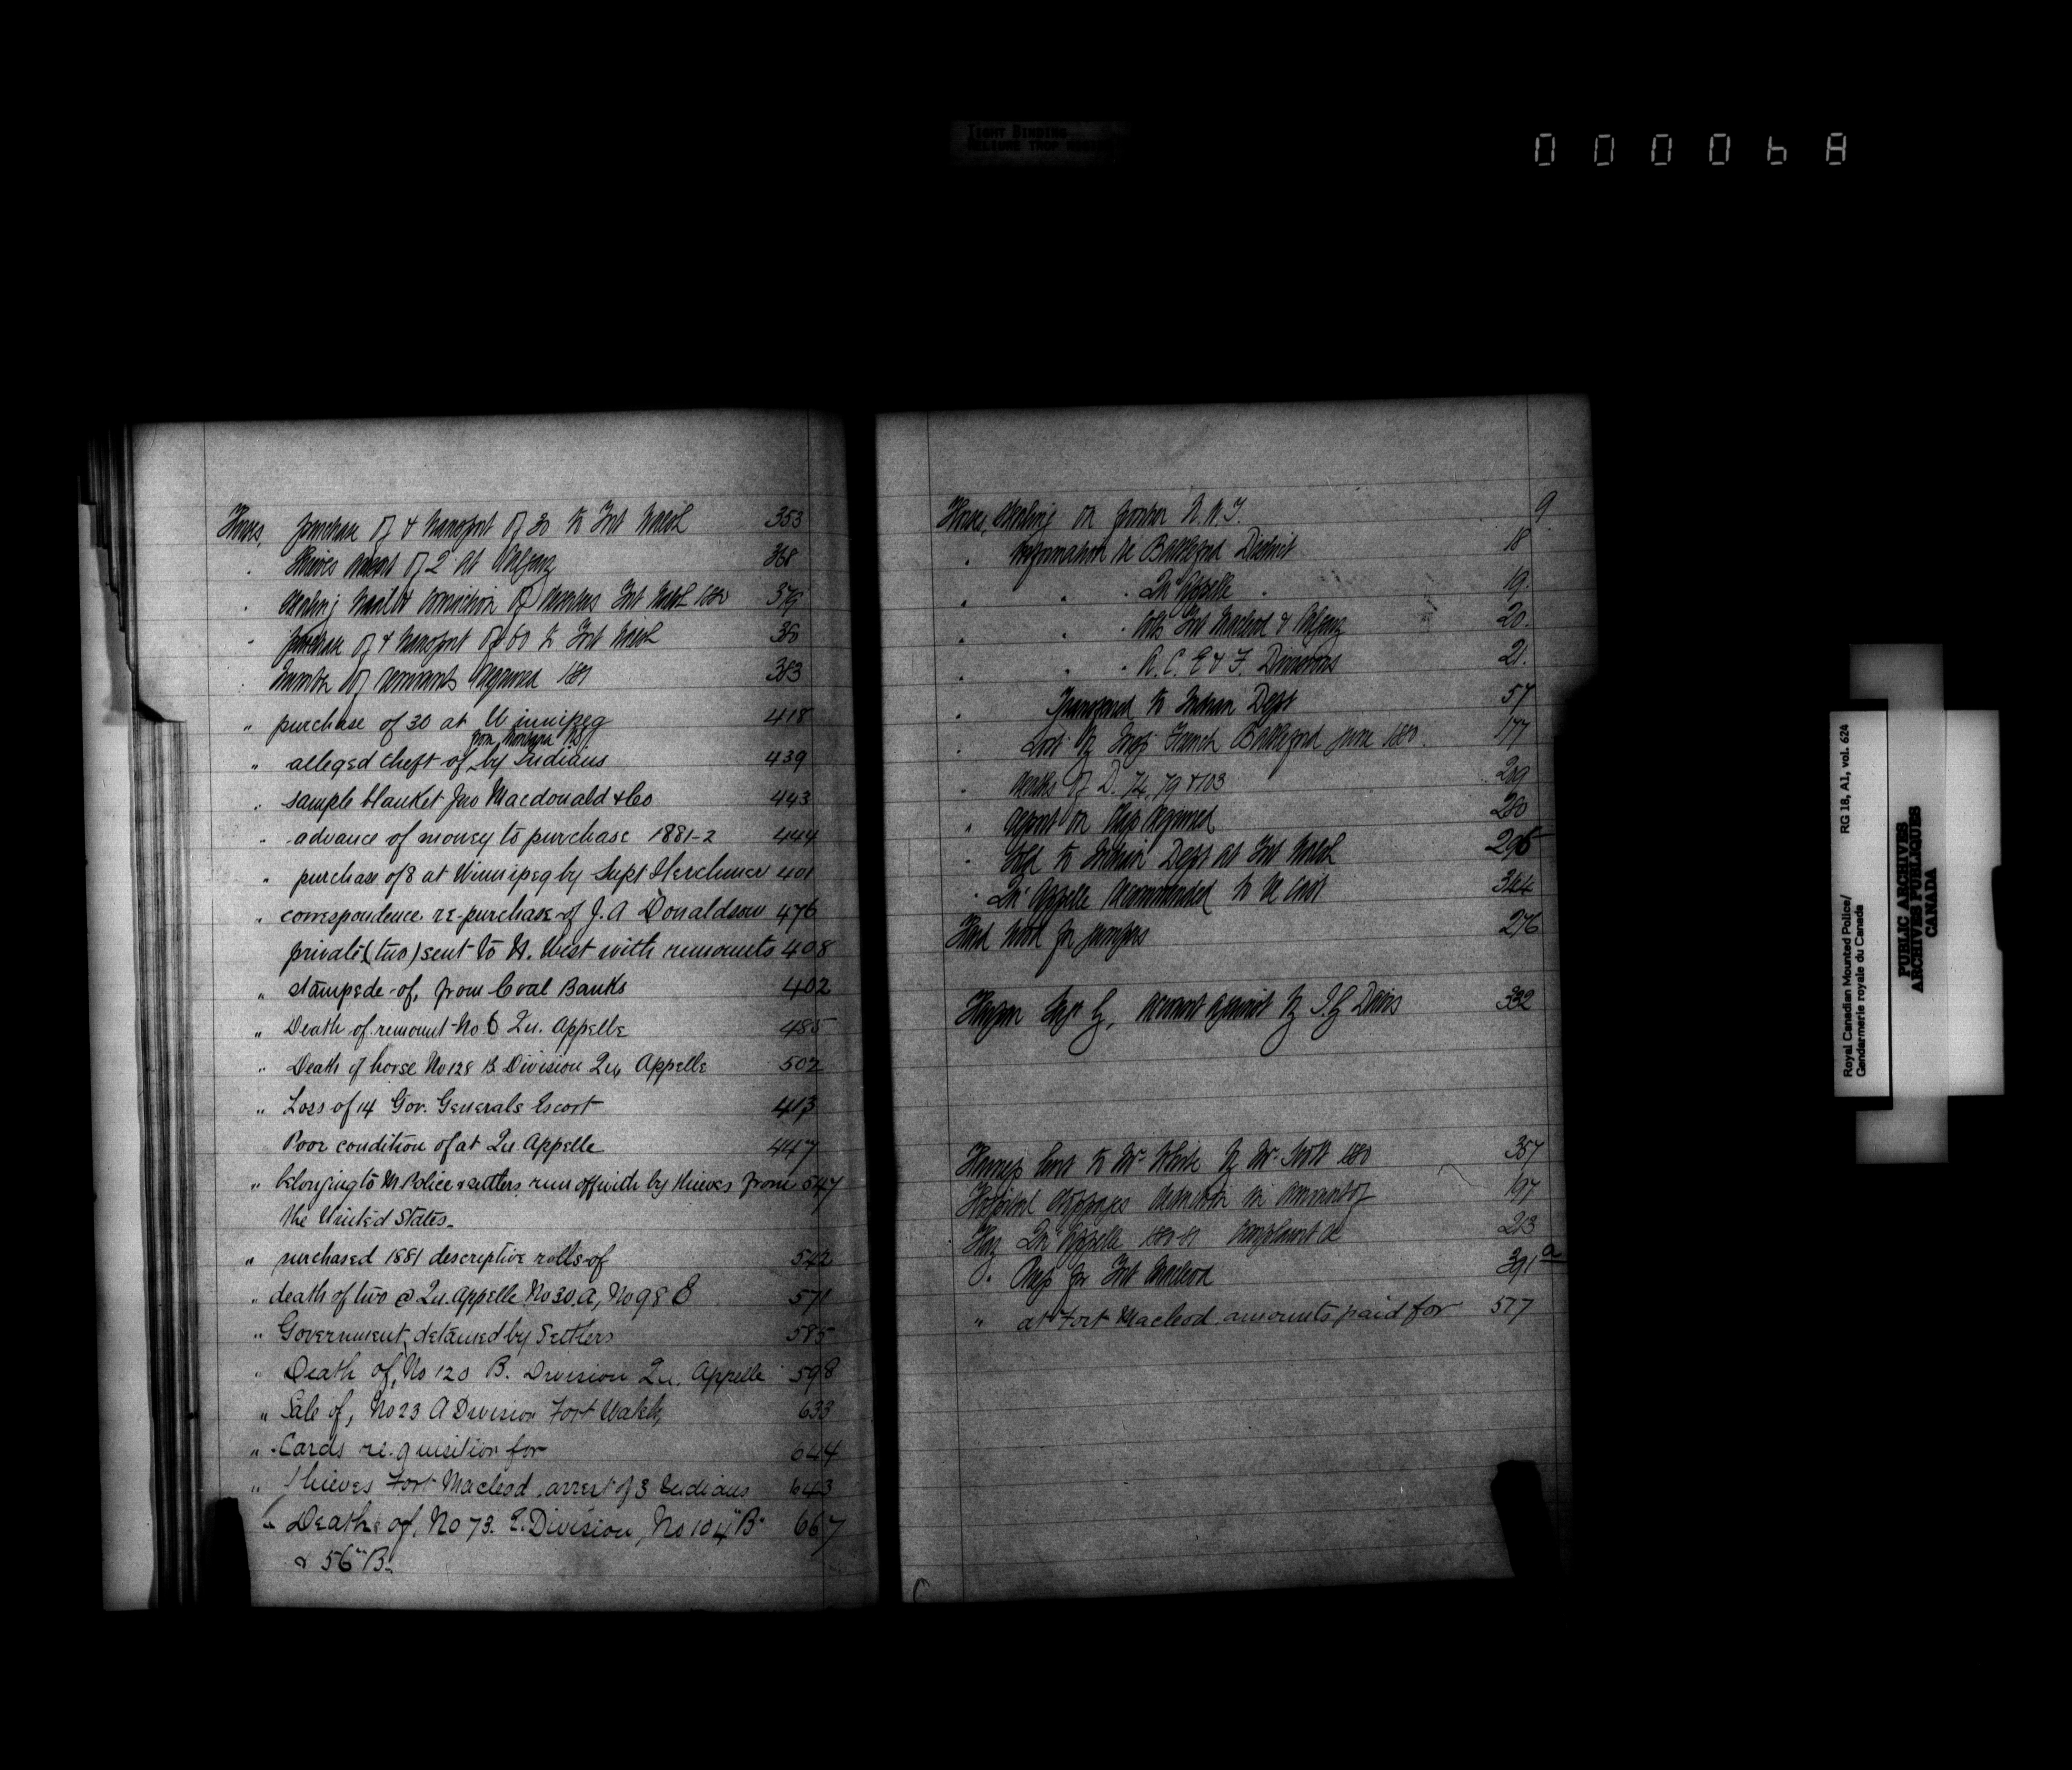 TIGHT BINDING
RELIURE TROP
000068
Horses, purchase of & transport of 30 to Fort Walsh 353
" thieves arrest of 2 at Calgary 368
" stealing trial & conviction of Fort Walsh 1880 379
" purchase of & transport of 60 to Fort Walsh 380
" Number of remounts required 1881 383
" purchase of 30 at Winnipeg 418
from Montana
" alleged theft of by Indians 439
" sample blanket Jno Macdonald & Co 443
" advance of money to purchase 1881-2 444
" purchase of 8 at Winnipeg by Supt Herchmer 401
" correspondence re-purchase of J. A Donaldson 476
private (two) sent to N. West with remounts 408
" stampede of, from Coal Banks 402
" Death of remount No 6 Qu. Appelle 485
" Death of horse No 128 B Division Qu Appelle 502
" Loss of 14 Gov. Generals Escort 413
Poor condition of at Qu Appelle 447
" belonging to M Police & settlers run off with by thieves from 547
the United States
" purchased 1881 descriptive rolls of 542
" death of two @ Qu. Appelle No 30. A, No 98 571
" Government, detained by Settlers 585
" Death of, No 120 B. Division Qu. Appelle 598
" Sale of, No 23 A Division Fort Walsh, 633
" Cards requisition for 644
" Thieves Fort Macleod arrest of 3 Indians 643
" Deaths of, No 73. E. Division, No 104 "B" 667
& 56 "B"
Horses, stealing on frontier N.W.T. 9
" information re Battleford District 18
" " " Qu'Appelle " 19.
" " " Fort Macleod & Calgary 20.
" " " A. C. E & F. Divisions 21.
" Transferred to Indian Dept 57
" Lost by Insp French Battleford June 1880. 177
" deaths of D. 74, 79 & 103 209
" report on required 280
" Sold to Indian Dept at Fort Walsh 295
" Qu'Appelle recommended to be cast 344
Hard wood for jumpers 276
Supt account against by I. G Baker 332
sent to Mr White by Mr Scott 1880 357
Hospital stoppages reduction in amount of 197
Hay Qu'Appelle 1880-81 complaint re 213
" for Fort Macleod 391 a
" at Fort Macleod amounts paid for 577
Royal Canadian Mounted Police/ RG 18, A1, vol. 624
Gendarmerie royale du Canada
PUBLIC ARCHIVES
ARCHIVES PUBLIQUES
CANADA